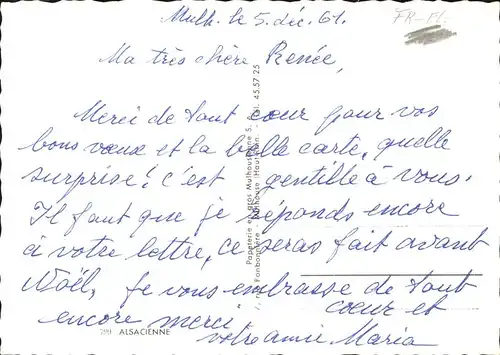 Mulh. le 5. déc. 61.
FR-Pl-
Ma très chère Renée,
Merci de tout cœur pour vos
bons vœux et la belle carte, quelle
surprise! c'est gentille à vous.
Il faut que je réponds encore
à votre lettre, ce seras fait avant
Noël, je vous embrasse de tout
cœur et
encore merci
votre amie Maria
ALSACIENNE
Papeterie en Gros Mulhousienne S.
rue Fonbonnerie - Mulhouse (Haut-Rhin. - Tél. 45.57 25